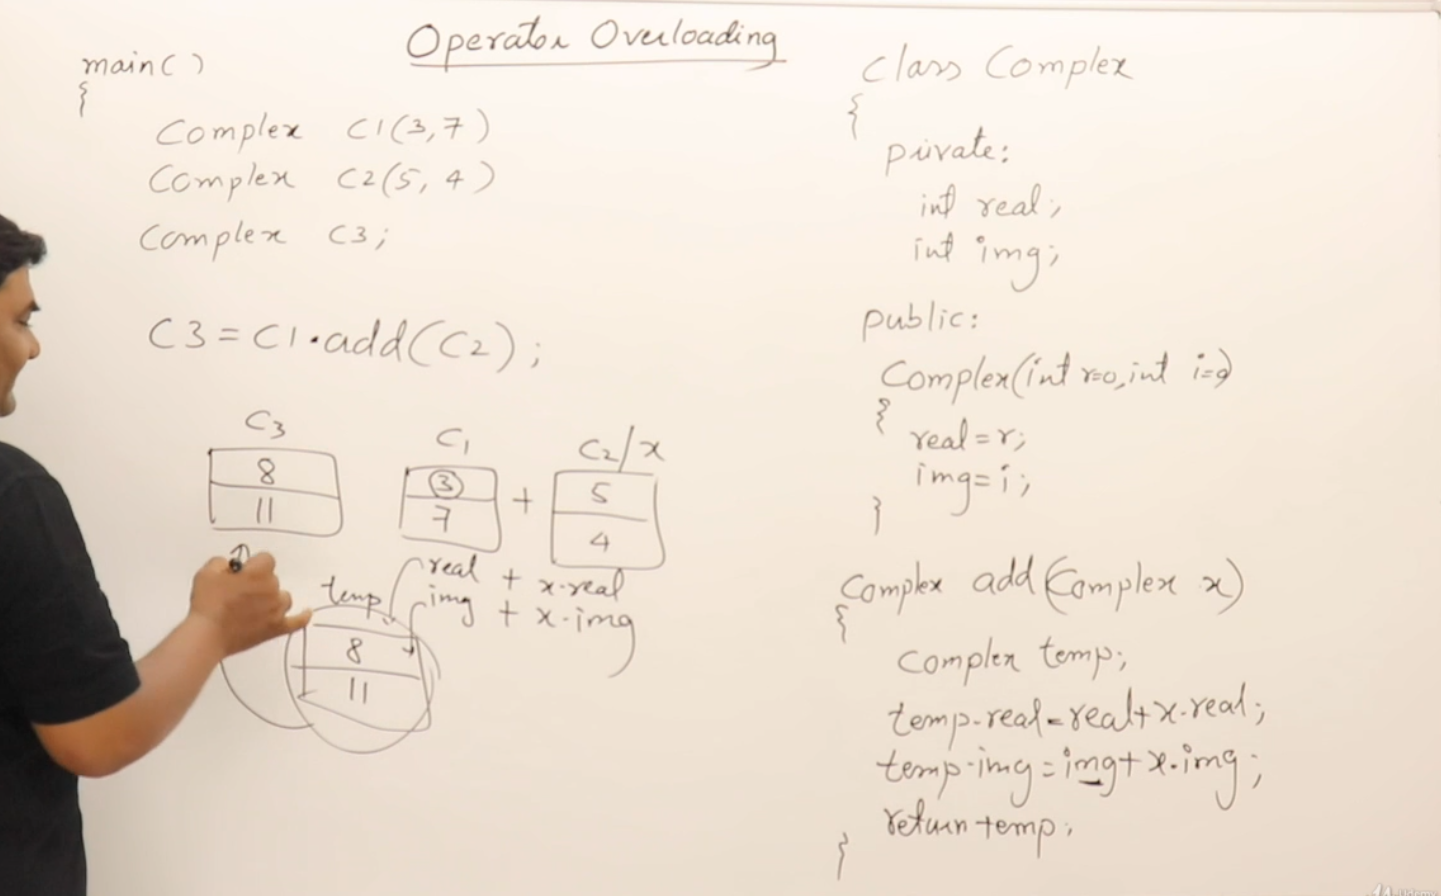 Operator Overloading
main()
{
Complex C1(3,7)
Complex C2(5,4)
Complex C3;
C3=C1.add(C2);
C3
8
11
C1
3
7
+
C2/x
5
4
real + x.real
img + x.img
temp
8
11
class Complex
{
private:
int real;
int img;
public:
Complex(int r=0,int i=0)
{
real=r;
img=i;
}
Complex add(Complex x)
{
Complex temp;
temp.real=real+x.real;
temp.img=img+x.img;
return temp;
}
Udemy